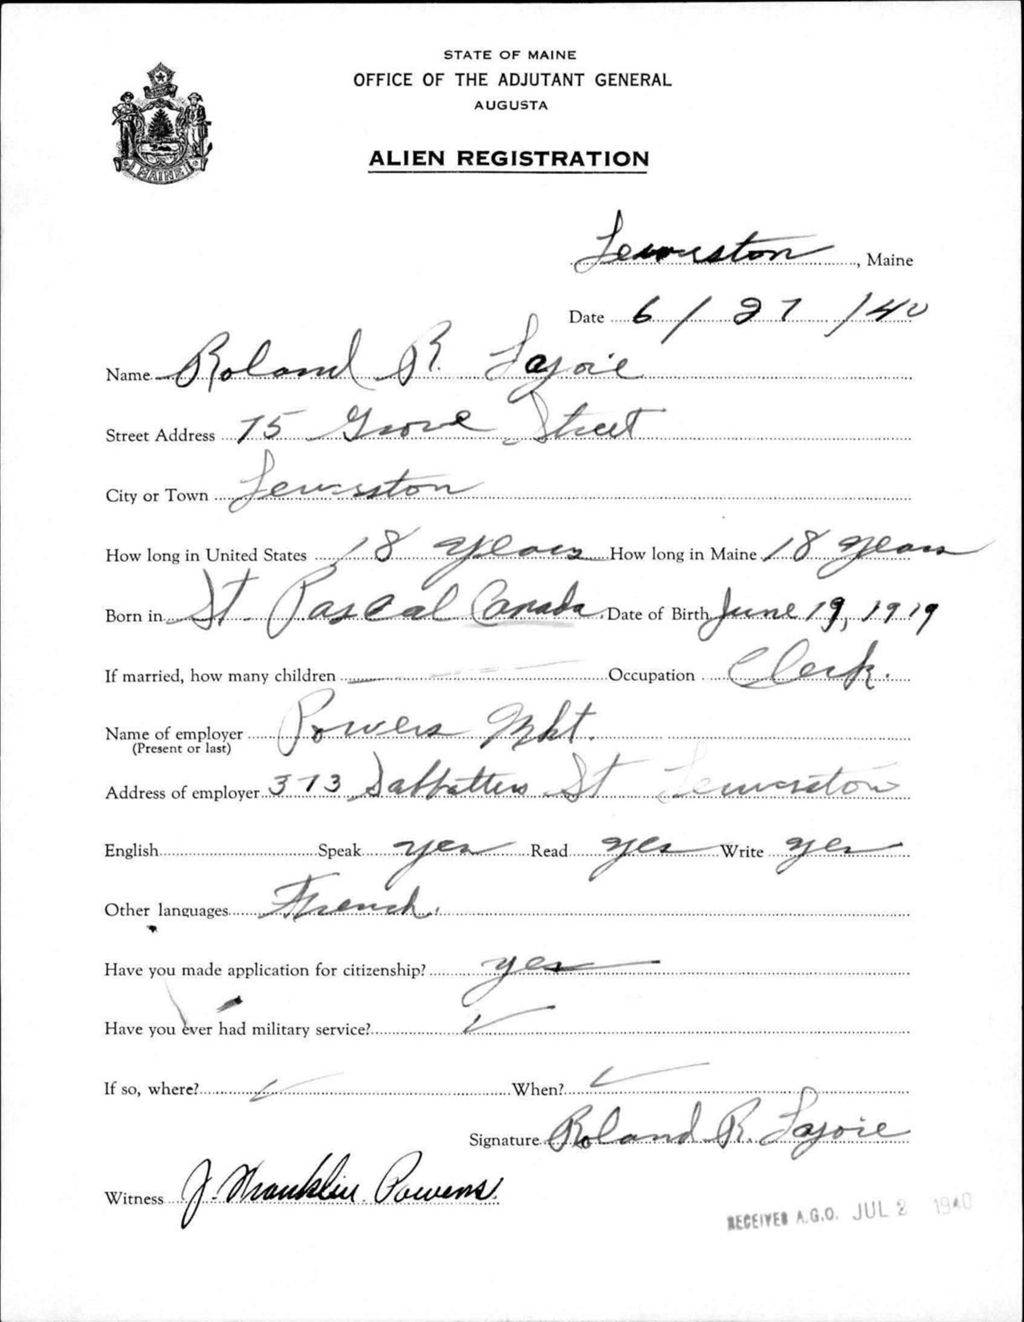 STATE OF MAINE
OFFICE OF THE ADJUTANT GENERAL
AUGUSTA
ALIEN REGISTRATION
MAINE
Lewiston, Maine
Date 6/27/40
Name Roland R. Lajoie
Street Address 75 Grove Street
City or Town Lewiston
How long in United States 18 years How long in Maine 18 years
Born in St. Pascal Canada. Date of Birth June 19, 1919
If married, how many children Occupation Clerk.
Name of employer Powers Mkt.
(Present or last)
Address of employer 373 Sabbattus St Lewiston
English Speak yes Read yes Write yes
Other languages French.
Have you made application for citizenship? yes
Have you ever had military service?
If so, where? When?
Signature Roland R. Lajoie
Witness J. Franklin Powers
RECEIVED A.G.O. JUL 2 1940